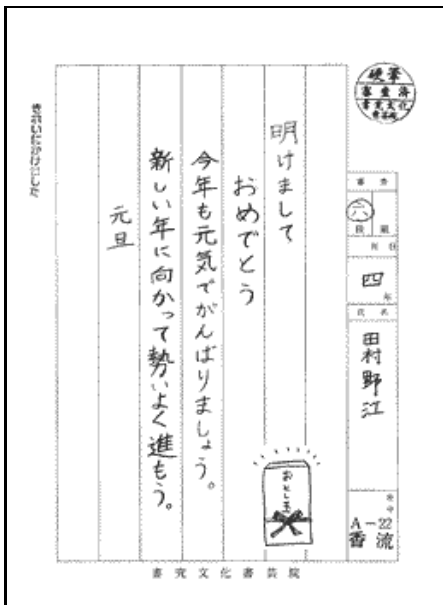 硬筆
審査済
書究文化
書芸院
審査
六
段 級
四年
氏名
田村野江
A-22
香流
明けまして
おめでとう
今年も元気でがんばりましょう。
新しい年に向かって勢いよく進もう。
元旦
おとし玉
きれいにかけました
書究文化書芸院